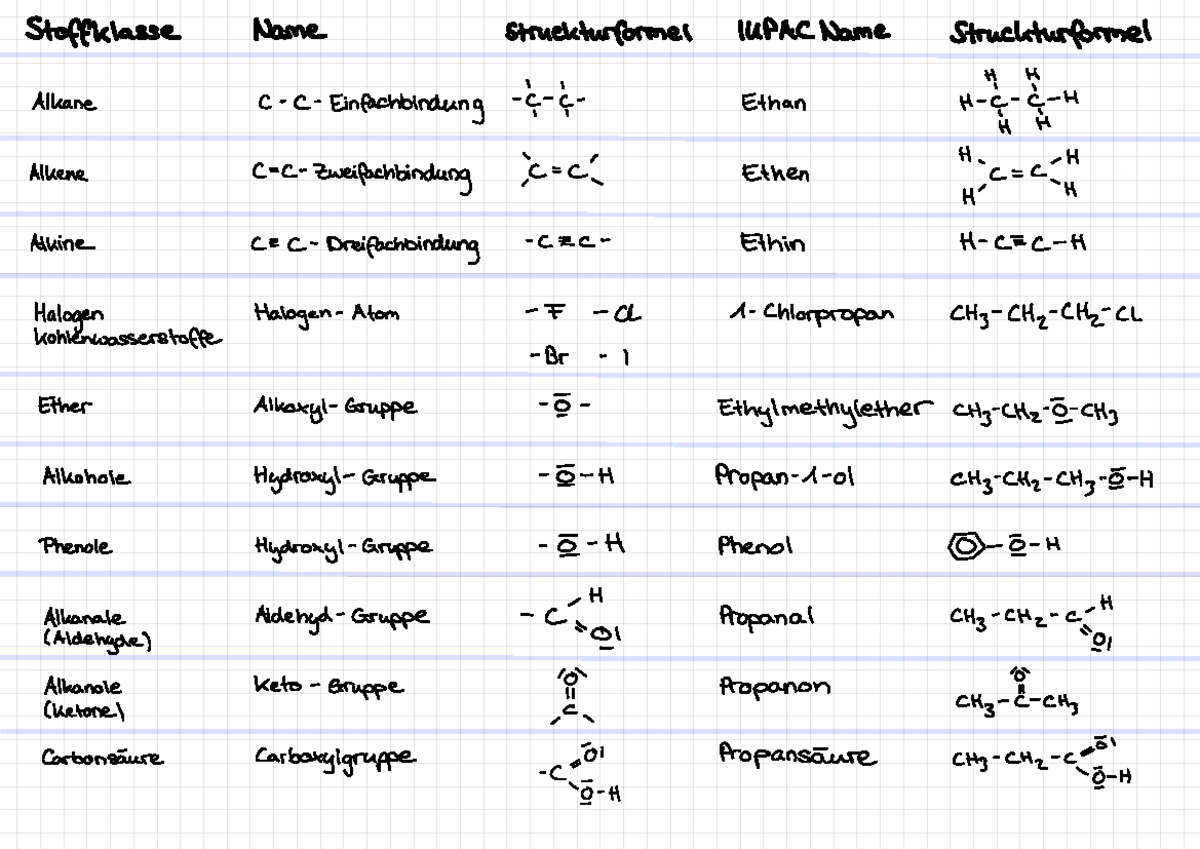 Stoffklasse Name Struckturformel IUPAC Name Struckturformel
Alkane C-C-Einfachbindung -C-C- Ethan H H
H-C-C-H
H H
Alkene C=C-Zweifachbindung C=C Ethen H C=C H
H H
Alkine C≡C-Dreifachbindung -C≡C- Ethin H-C≡C-H
Halogen Halogen-Atom -F -Cl 1-Chlorpropan CH3-CH2-CH2-CL
kohlenwasserstoffe -Br -I
Ether Alkoxyl-Gruppe -O- Ethylmethylether CH3-CH2-O-CH3
Alkohole Hydroxyl-Gruppe -O-H Propan-1-ol CH3-CH2-CH3-O-H
Phenole Hydroxyl-Gruppe -O-H Phenol -O-H
Alkanale Aldehyd-Gruppe -C H Propanal CH3-CH2-C H
(Aldehyde) O O
Alkanole Keto-Gruppe O Propanon O
(Ketone) C CH3-C-CH3
Carbonsäure Carboxylgruppe -C O Propansäure CH3-CH2-C O
O-H O-H